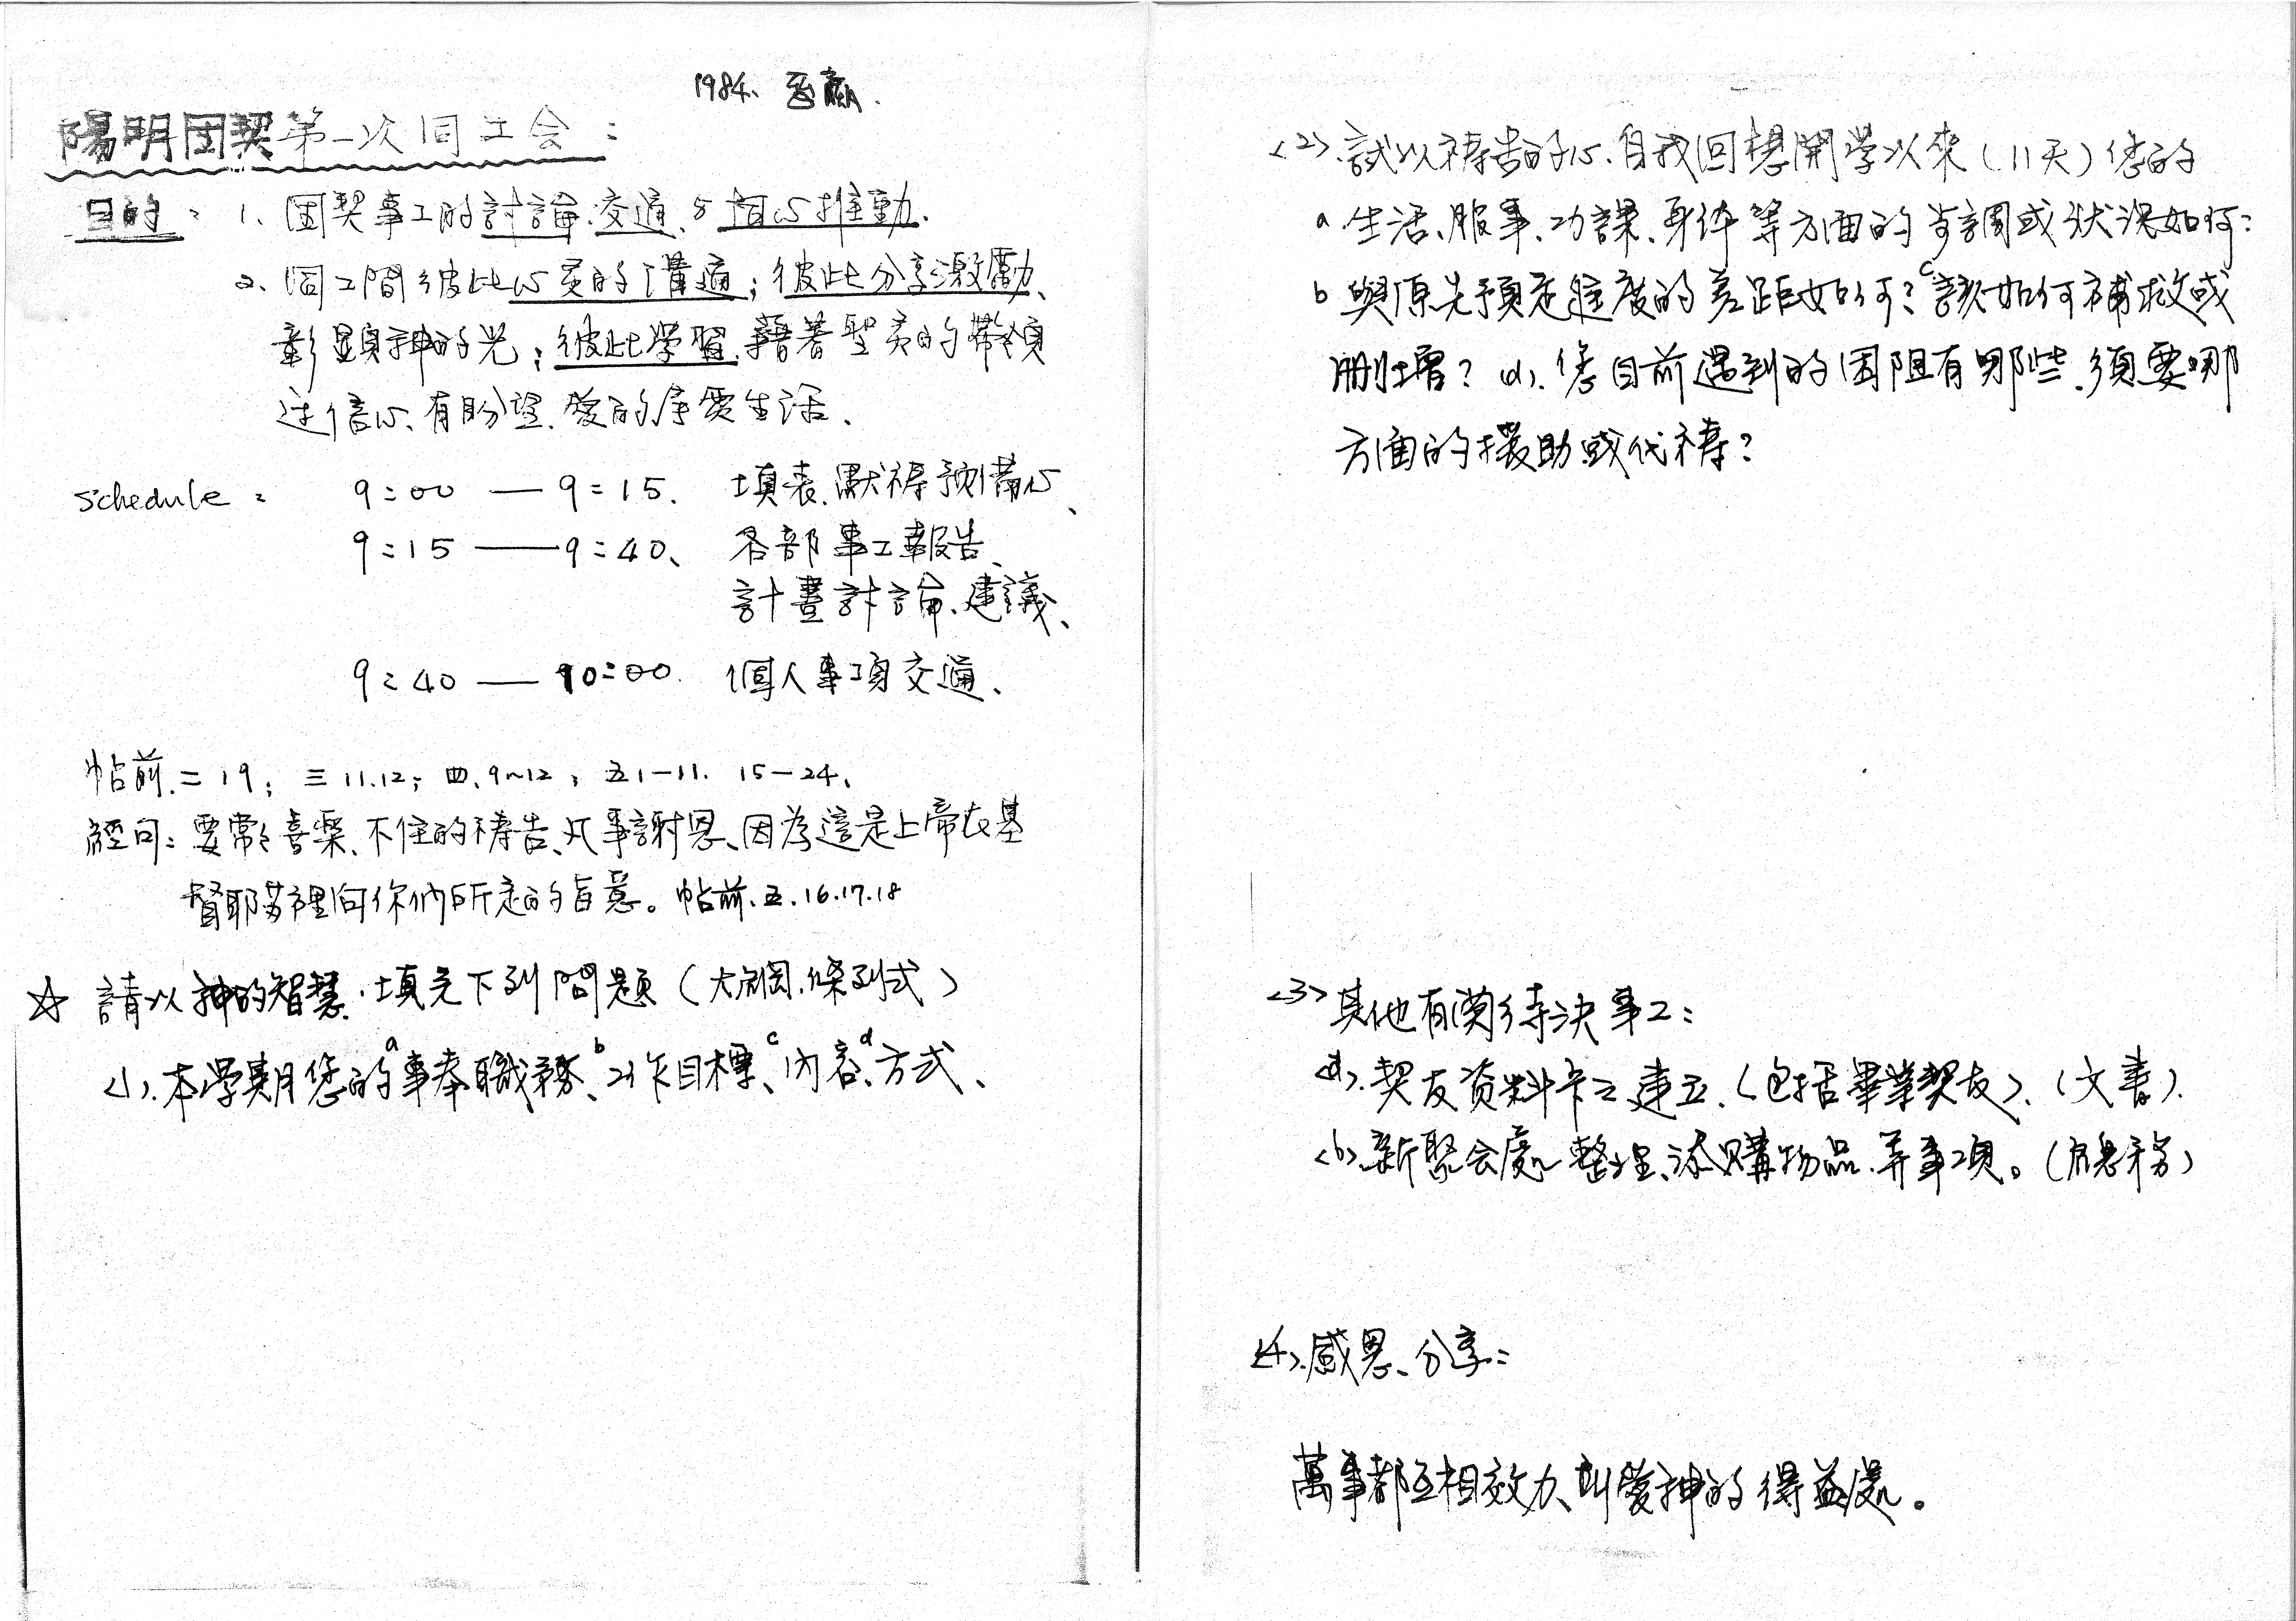 1984.
陽明团契第一次同工会：
目的：1、团契事工的討論、交通、与同心推動.
2、同工間彼此心灵的溝通；彼此分享激勵、
彰顯神的光；彼此学習、藉着聖灵的帶領
过信心、有盼望、愛的生活、
schedule： 9:00 — 9:15. 填表、默禱預備心、
9:15 — 9:40、 各部事工報告、
計畫討論、建議、
9:40 — 10:00. 個人事項交通、
帖前.二19；三11.12；四.9~12；五1-11. 15-24、
經句：要常々喜樂、不住的禱告、凡事謝恩、因為這是上帝在基
督耶苏裡向你們所定的旨意。帖前.五.16.17.18
☆ 請以神的智慧.填完下列問題（大綱.條列式）
<1>.本学期您的a事奉職務、b工作目標、c內容、d方式、
<2>.試以禱告的心.自我回想開学以來（11天）您的
a 生活、服事、功課、身体等方面的步調或狀況如何？
b 與原先預定進度的差距如何？c該如何補救或
刪增？(d).您目前遇到的困阻有那些.須要哪
方面的援助或代禱？
<3>其他有関待決事工：
<a>.契友資料卡之建立.（包括畢業契友）.（文書）.
<b>.新聚会處整理、添購物品.等事項。（總務）
<4>.感恩、分享：
萬事都互相效力、叫愛神的得益處。